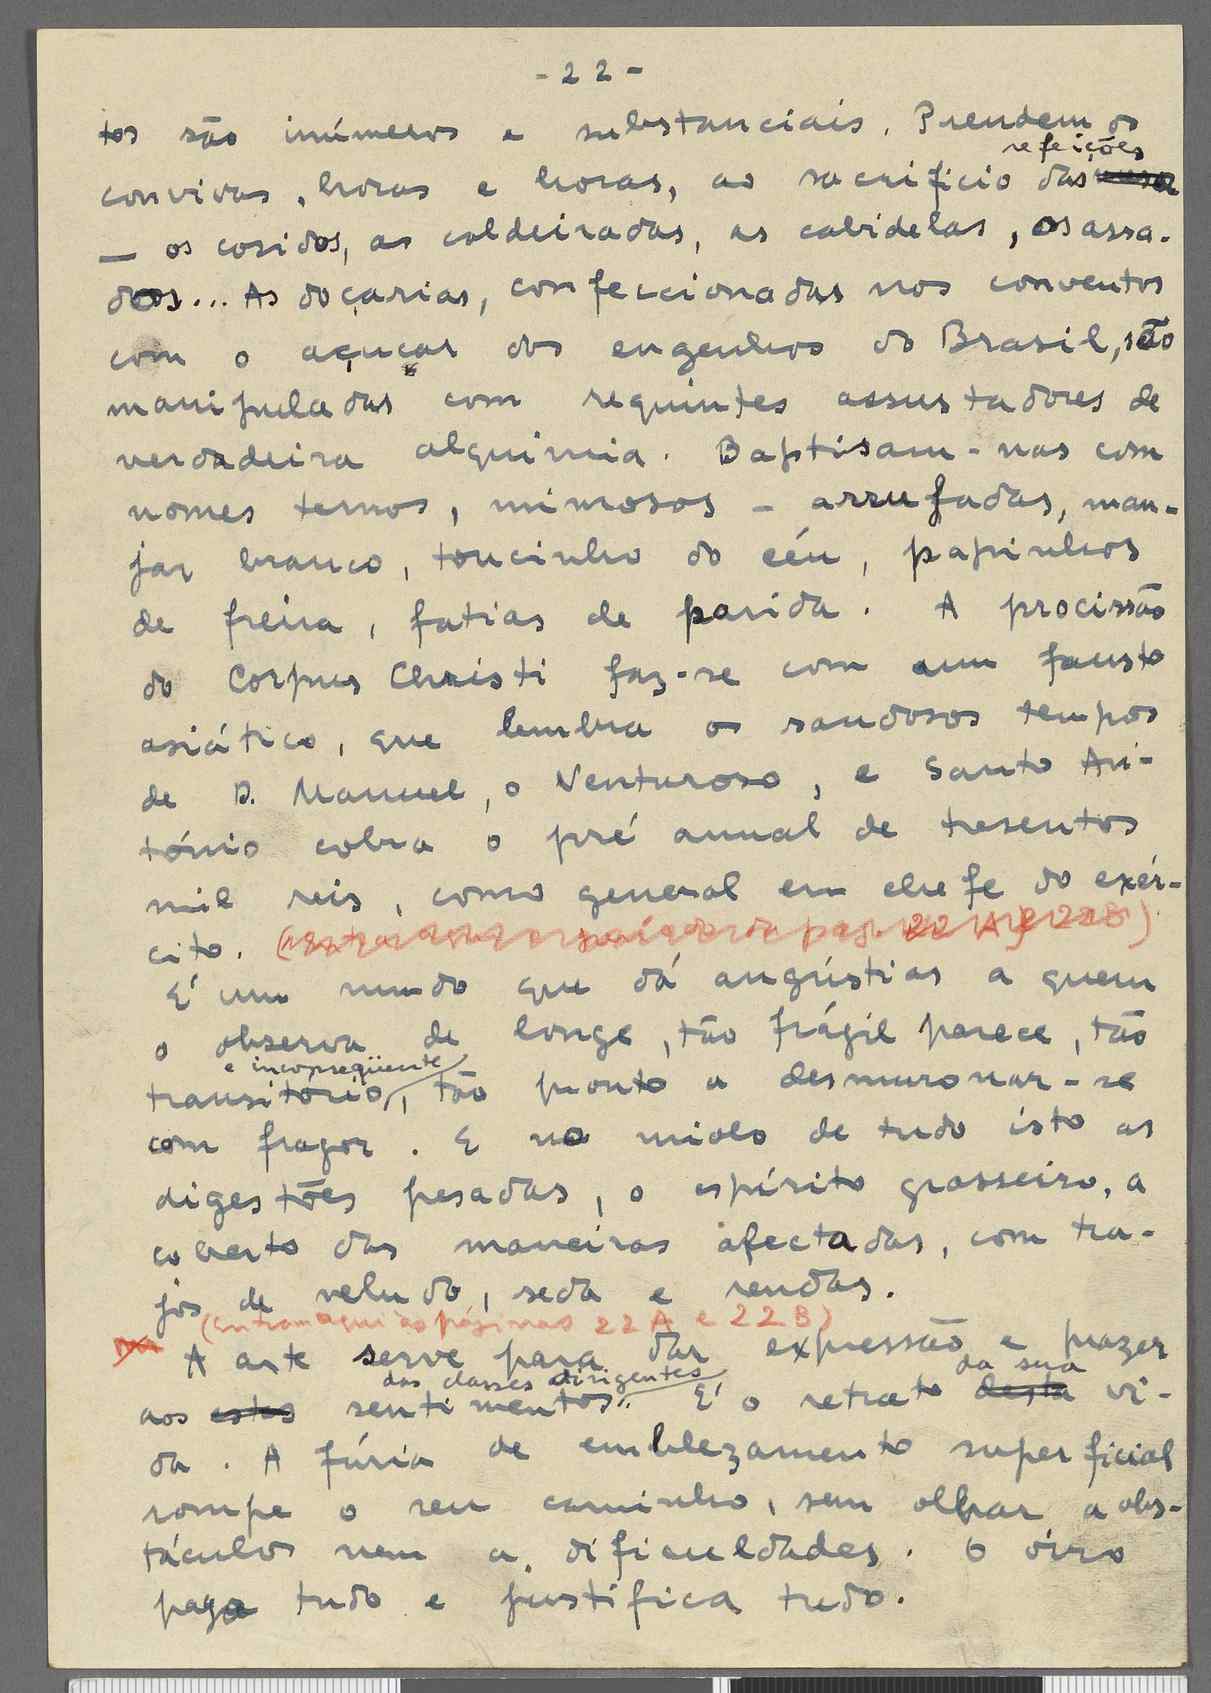 - 22 -
tos são inúmeros e substanciais. Prendem os
refeições
convivas, horas e horas, ao sacrifício das
— os cosidos, as caldeiradas, as cabidelas, os assa-
dos... As doçarias, confeccionadas nos conventos
com o açucar dos engenhos do Brasil, são
manipuladas com requintes assustadores de
verdadeira alquimia. Baptisam-nas com
nomes ternos, mimosos - arrufadas, man-
jar branco, toucinho do céu, papinhos
de freira, fatias de parida. A procissão
do Corpus Christi faz-se com um fausto
asiático, que lembra os saudosos tempos
de D. Manuel, o Venturoso, e Santo An-
tónio cobra o pré annual de tresentos
mil reis, como general em chefe do exér-
cito.
É um mundo que dá angústias a quem
o observa de longe, tão frágil parece, tão
e inconseqüente
transitório, tão pronto a desmoronar-se
com fragor. E no miolo de tudo isto as
digestões pesadas, o espírito grosseiro, a
coberto das maneiras afectadas, com tra-
jos de veludo, seda e rendas.
(entram aqui as páginas 22 A e 22 B)
A arte serve para dar expressão e prazer
das classes dirigentes da sua
aos estes sentimentos. É o retrato desta vi-
da. A fúria de embelezamento superficial
rompe o seu caminho, sem olhar a obs-
táculos nem a dificuldades. O óiro
paga tudo e justifica tudo.